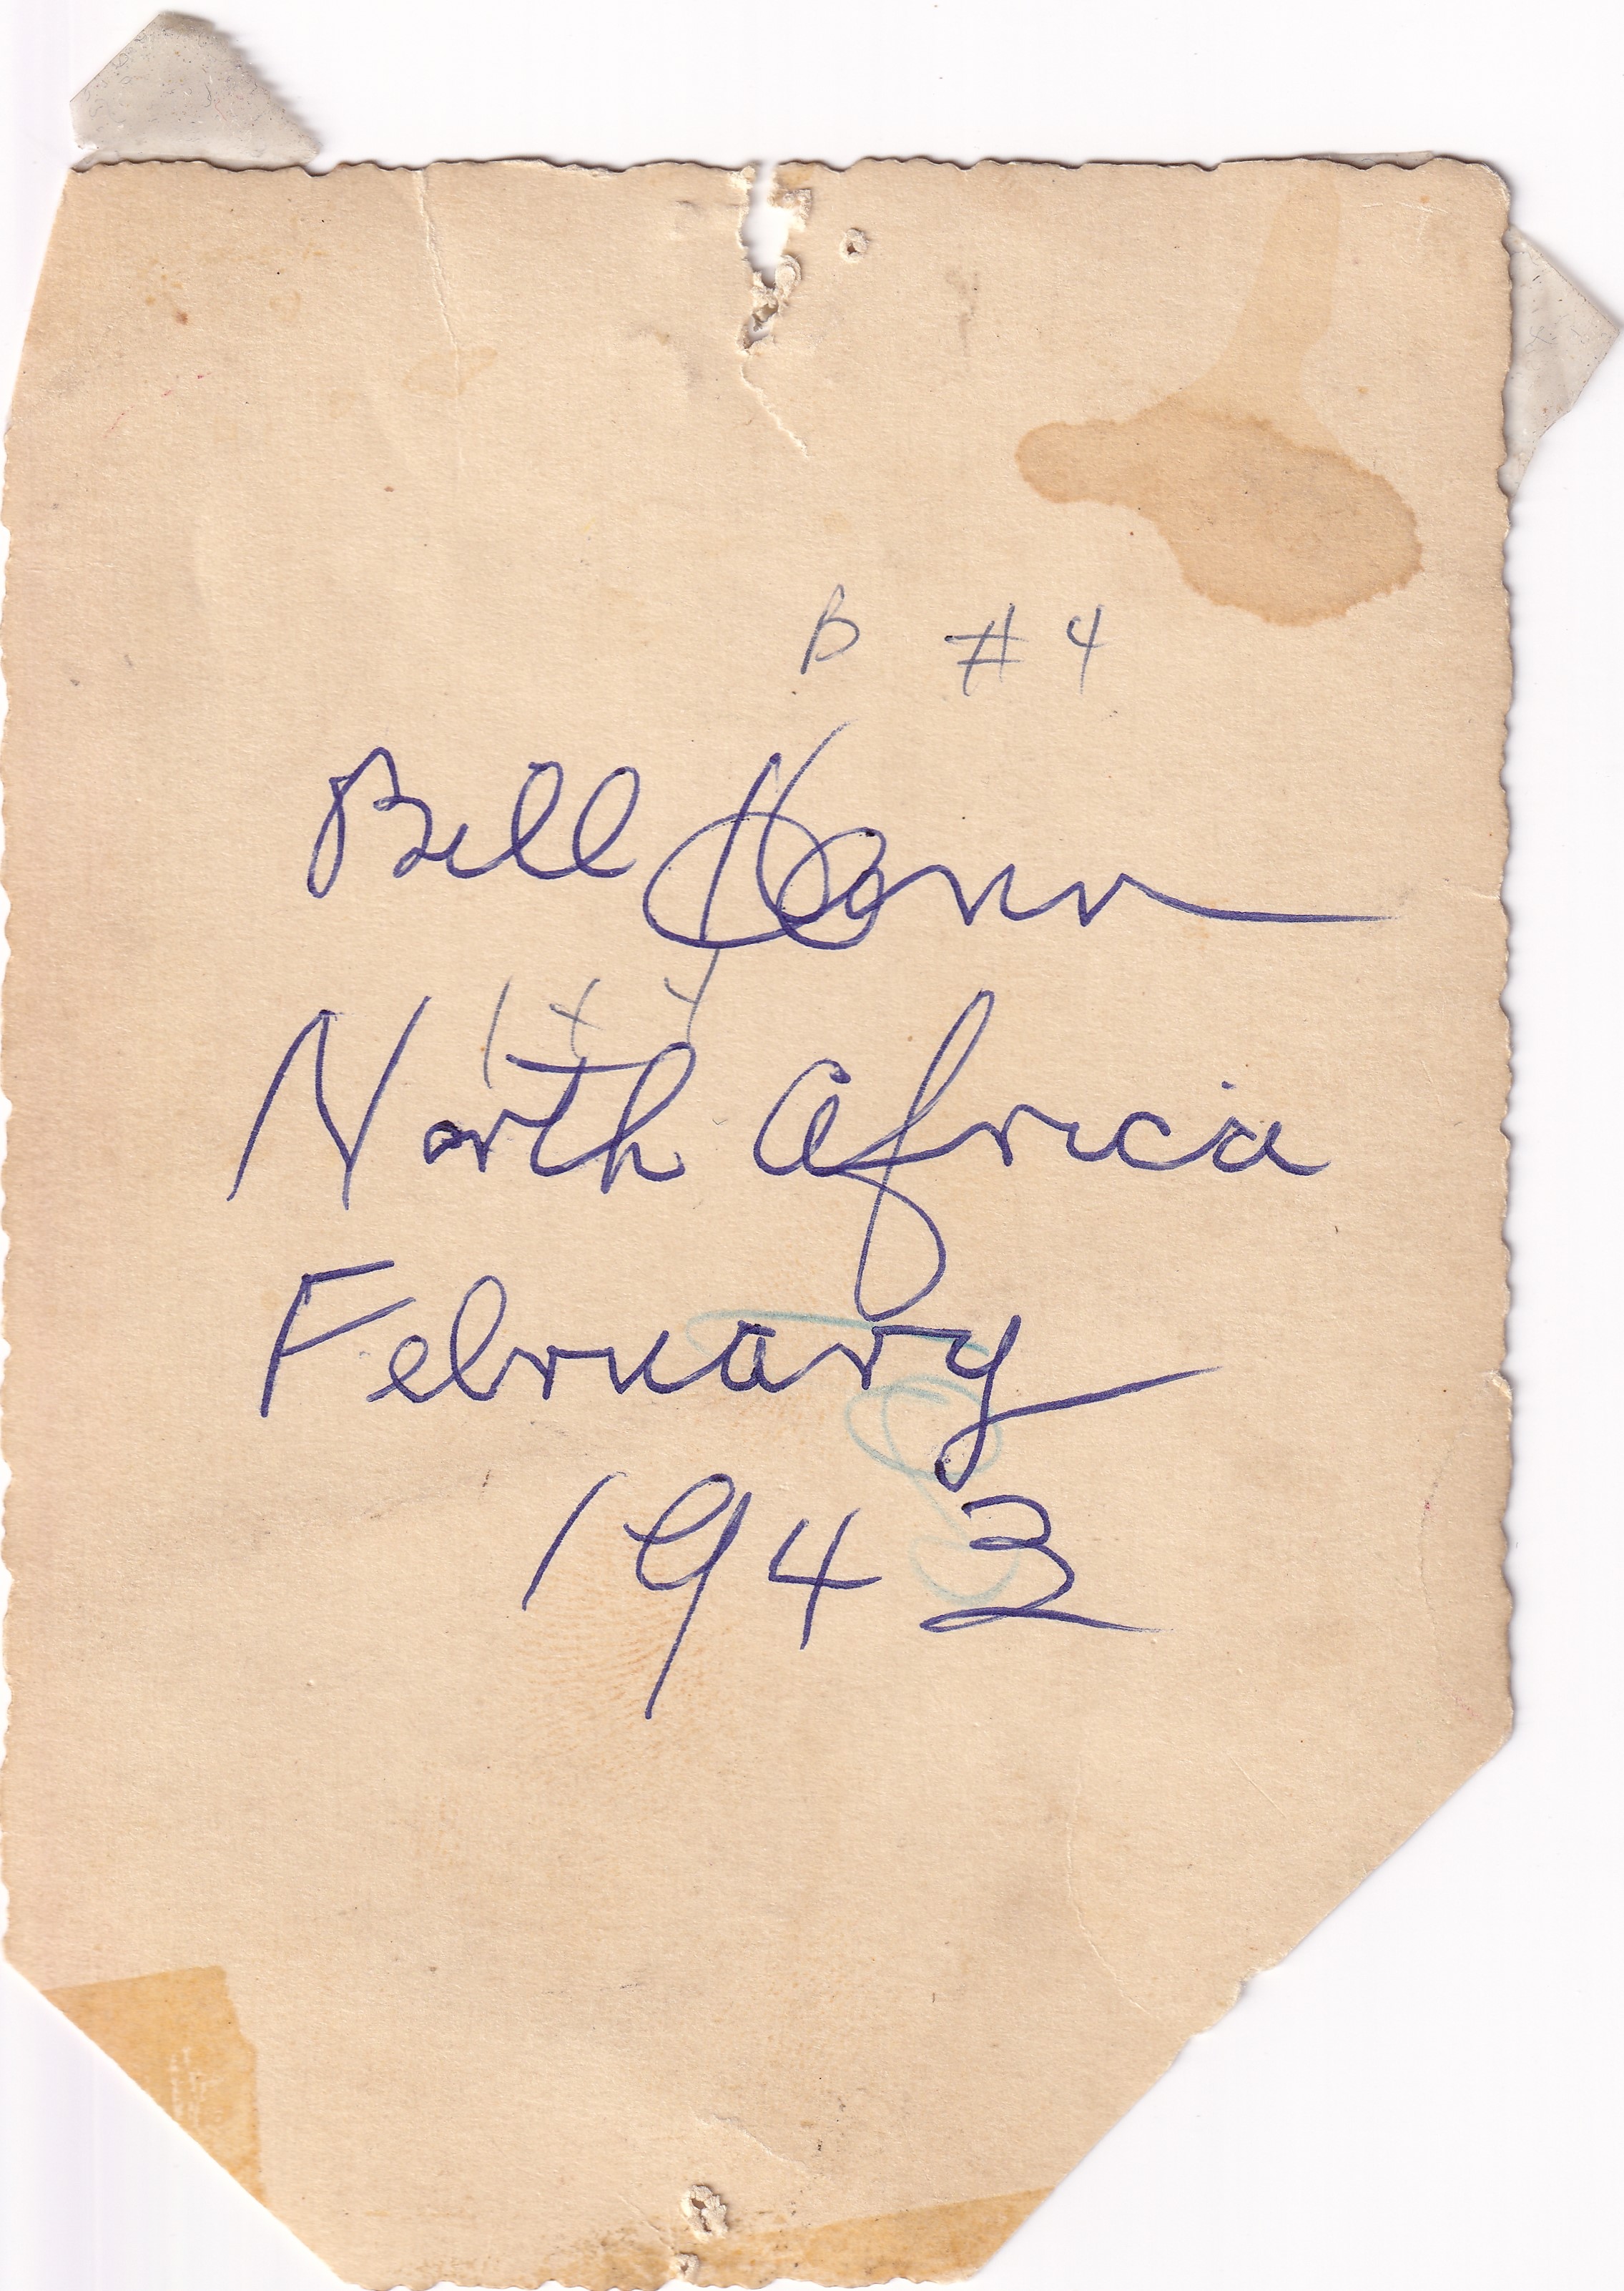 B #4
Bill
North Africa
February
1943